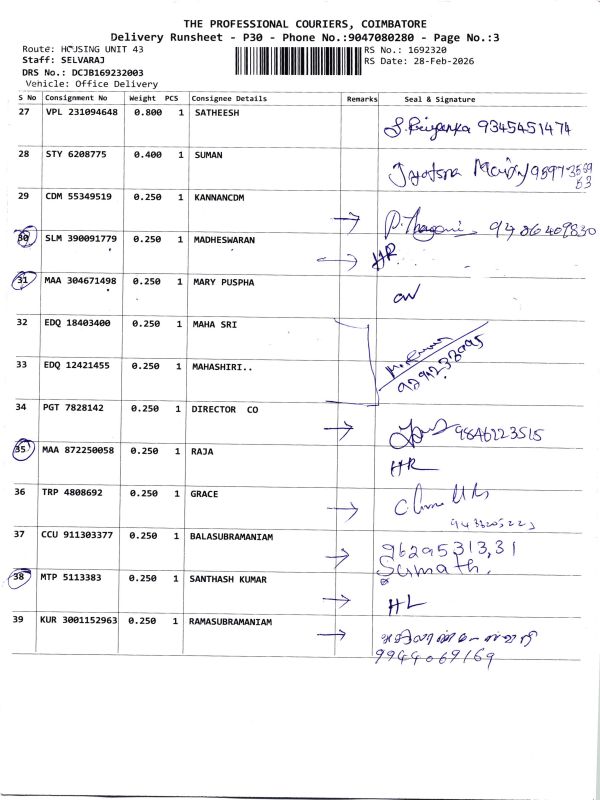 THE PROFESSIONAL COURIERS, COIMBATORE
Delivery Runsheet - P30 - Phone No.:9047080280 - Page No.:3
Route: HOUSING UNIT 43 RS No.: 1692320
Staff: SELVARAJ RS Date: 28-Feb-2026
DRS No.: DCJB169232003
Vehicle: Office Delivery
S No Consignment No Weight PCS Consignee Details Remarks Seal & Signature
27 VPL 231094648 0.800 1 SATHEESH
S. Priyanka 9345451474
28 STY 6208775 0.400 1 SUMAN
29 CDM 55349519 0.250 1 KANNANCDM
→ 9486409830
30 SLM 390091779 0.250 1 MADHESWARAN
→ HR
31 MAA 304671498 0.250 1 MARY PUSPHA
32 EDQ 18403400 0.250 1 MAHA SRI
33 EDQ 12421455 0.250 1 MAHASHIRI..
34 PGT 7828142 0.250 1 DIRECTOR CO
→ 9846223515
35 MAA 872250058 0.250 1 RAJA
HR
36 TRP 4808692 0.250 1 GRACE
→
37 CCU 911303377 0.250 1 BALASUBRAMANIAM
→ 9629531331
Sumathi.
38 MTP 5113383 0.250 1 SANTHASH KUMAR
→ HL
39 KUR 3001152963 0.250 1 RAMASUBRAMANIAM
→
9944069169